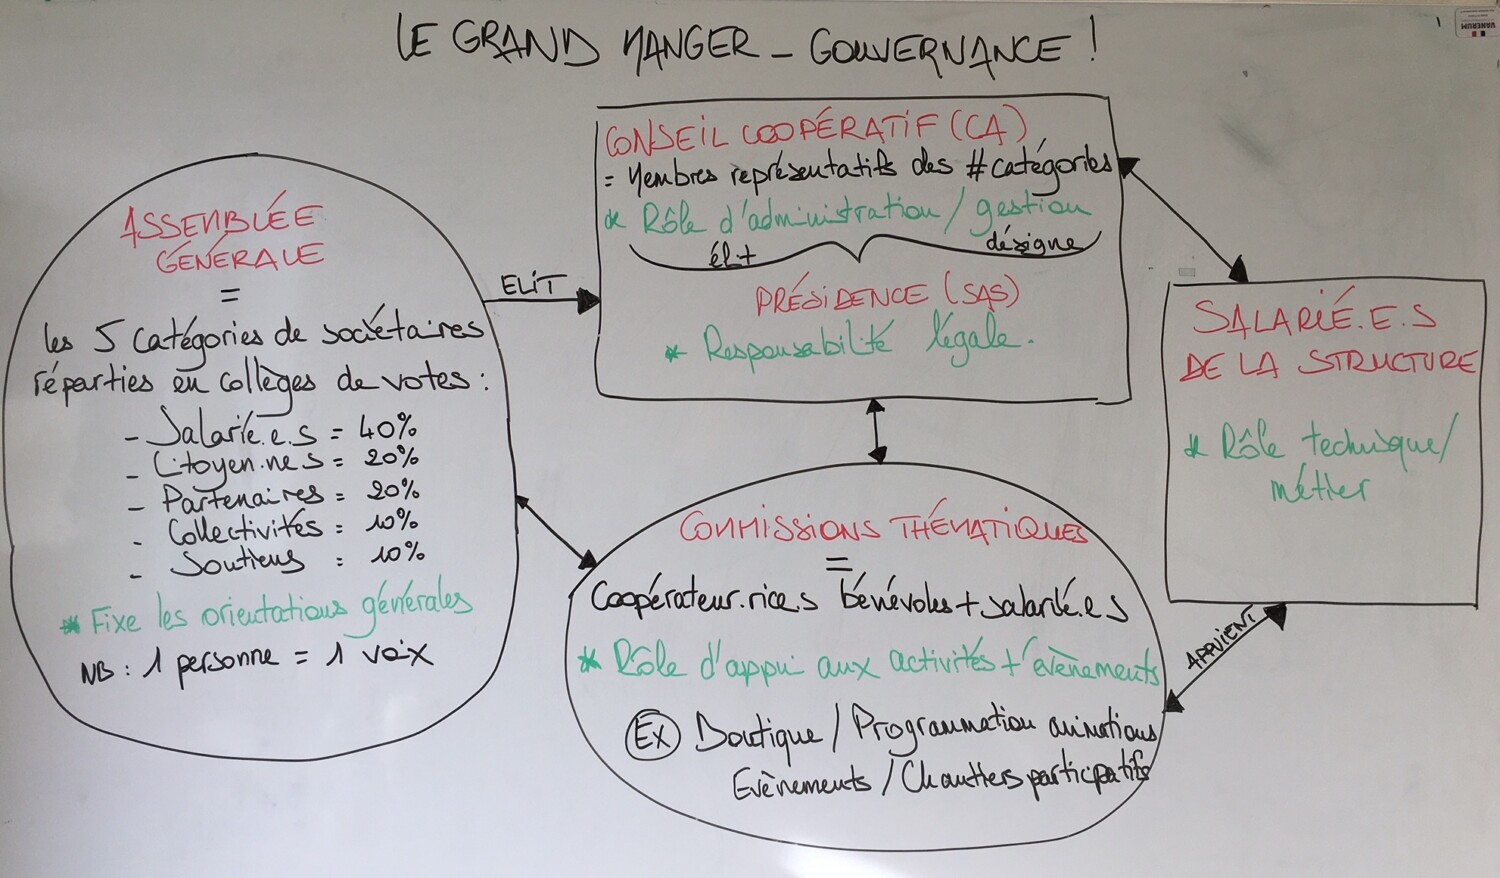 LE GRAND MANGER - GOUVERNANCE !
VANERUM
ASSEMBLÉE
GÉNÉRALE
=
les 5 catégories de sociétaires
réparties en collèges de votes :
- Salarié.e.s = 40%
- Citoyen.nes = 20%
- Partenaires = 20%
- Collectivités = 10%
- Soutiens = 10%
* Fixe les orientations générales
NB : 1 personne = 1 voix
ELIT
CONSEIL COOPÉRATIF (CA)
= Membres représentatifs des # catégories
* Rôle d'administration / gestion
élit désigne
PRÉSIDENCE (SAS)
* Responsabilité légale.
SALARIÉ.E.S
DE LA STRUCTURE
* Rôle technique/
métier
COMMISSIONS THÉMATIQUES
=
Coopérateur.rice.s bénévoles + salarié.e.s
* Rôle d'appui aux activités + évènements
Ex Boutique / Programmation animations
Evènements / Chantiers participatifs
APPUIENT